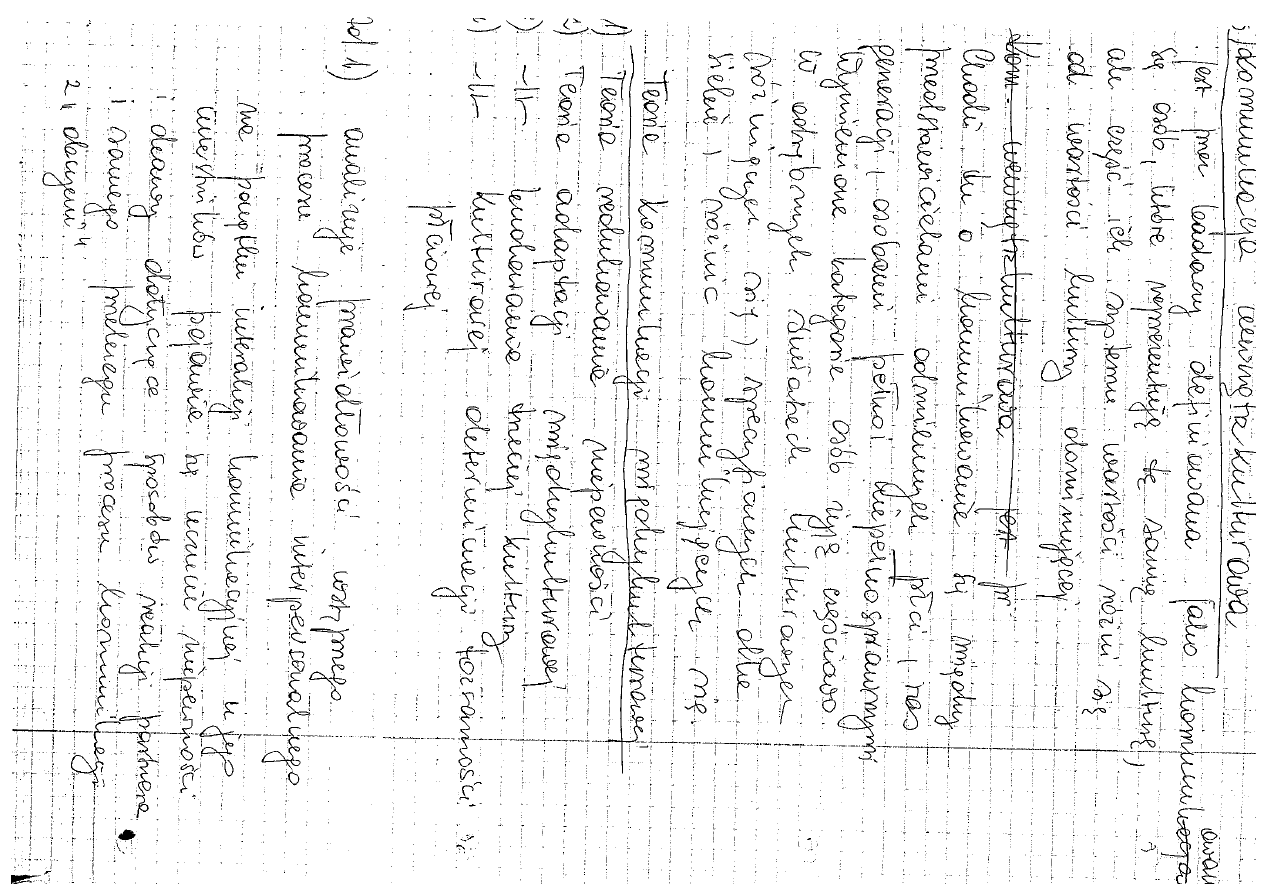 Komunikacja wewnątrzkulturowa
jest przez badaczy definiowana jako komunikowanie
się osób, które reprezentują tę samą kulturę,
ale część ich systemu wartości różni się
od wartości kultury dominującej
Kom. wewnątrzkulturowa jest pr
Chodzi tu o komunikowanie się między
przedstawicielami odmiennych płci, ras
generacji, osobami pełno i niepełnosprawnymi
Wymienione kategorie osób żyją częściowo
w odrębnych światach kulturowych
różniących się) specyficznych dla
siebie, różnic komunikujących się.
Teorie komunikacji międzykulturowej
1) Teoria redukowania niepewności
2) Teoria adaptacji międzykulturowej
3) -||- tworzenia trzeciej kultury
4) -||- kulturowej determinacji tożsamości
płciowej
Ad. 1) analizuje prawidłowości wstępnego
procesu komunikowania interpersonalnego
na początku interakcji komunikacyjnej u jego
uczestników pojawia się uczucie niepewności
i obawy dotyczące sposobów reakcji partnera
i samego przebiegu procesu komunikacji